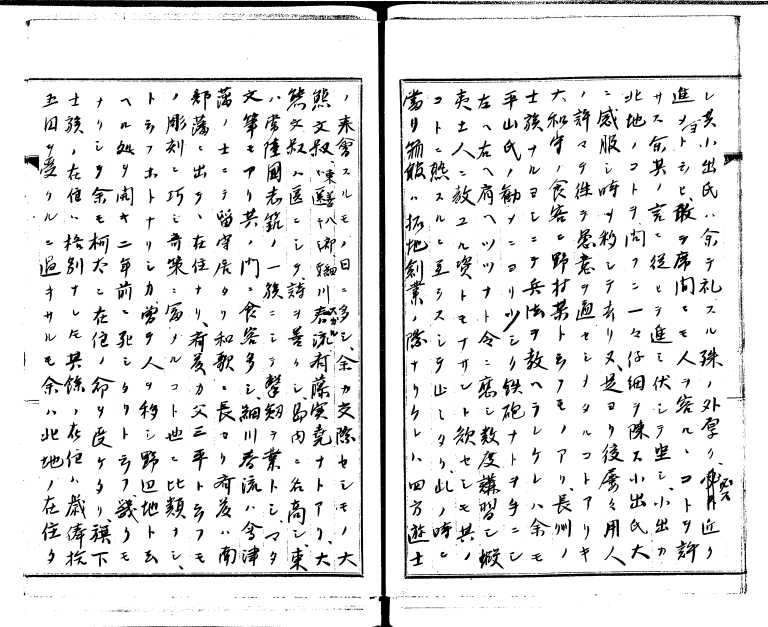 レ其小出氏ハ余ヲ礼スル殊ノ外厚ク、必ス近ク
進メントシ、敢テ席間ニモ人ヲ容ルヽコトヲ許
サス余其ノ言ニ従ヒテ進ミ伏シテ坐シ、小出カ
北地ノコトヲ問フニ一々仔細ヲ陳ス小出氏大
ニ感服シ時ヲ移シテ去リヌ、是ヨリ後屡々用人
ノ許マテ往テ愚意ヲ通セシメタルコトアリキ
大和守ノ食客ニ野村某ト云フモノアリ、長州ノ
士族ナルヨシニテ兵法ヲ教ヘラレケレハ余モ
平山氏ノ勧メニヨリ少シク鉄砲ナトヲ手ニシ
左ヘ右ヘ肩ヘツツナト令ニ応シ数度講習シ蝦
夷土人ニ教ユル資トモナサント欲セシモ其ノ
コトニ熟スルニ至ラスシテ止ミタリ、此ノ時ニ
当リ箱館ハ拓地創業ノ際ナリケレハ四方遊士
ノ来会スルモノ日ニ多シ、余カ交際セシモノ大
熊文叔、細川春流、有藤実堯ナトアリ、大
熊文叔ハ医ニシテ詩ヲ善クシ、島内ニ名高シ東
ハ常陸国志筑ノ一族ニシテ撃剣ヲ業トシ、マタ
文筆モアリ其ノ門ニ食客多シ、細川春流ハ会津
藩ノ士ニテ留守居タリ和歌ニ長セリ有ハ南
部藩ニ出テヽ在住ナリ、有カ父三平ト云フモ
ノ彫刻ニ巧ミ奇策ニ富メルコト地ニ比類ナシ、
ト云フホトナリシカ曽テ人ヲ移シ野辺地ト云
ヘル処ヲ開キ二年前ニ死シタリト云フ幾クモ
ナリシヲ余モ柯太ニ在住ノ命ヲ受ケタリ、旗下
士族ノ在住ハ格別ナレトモ其餘ノ在住ハ歳俸拾
五円ヲ受クルニ過キサルモ余ハ北地ノ在住タ